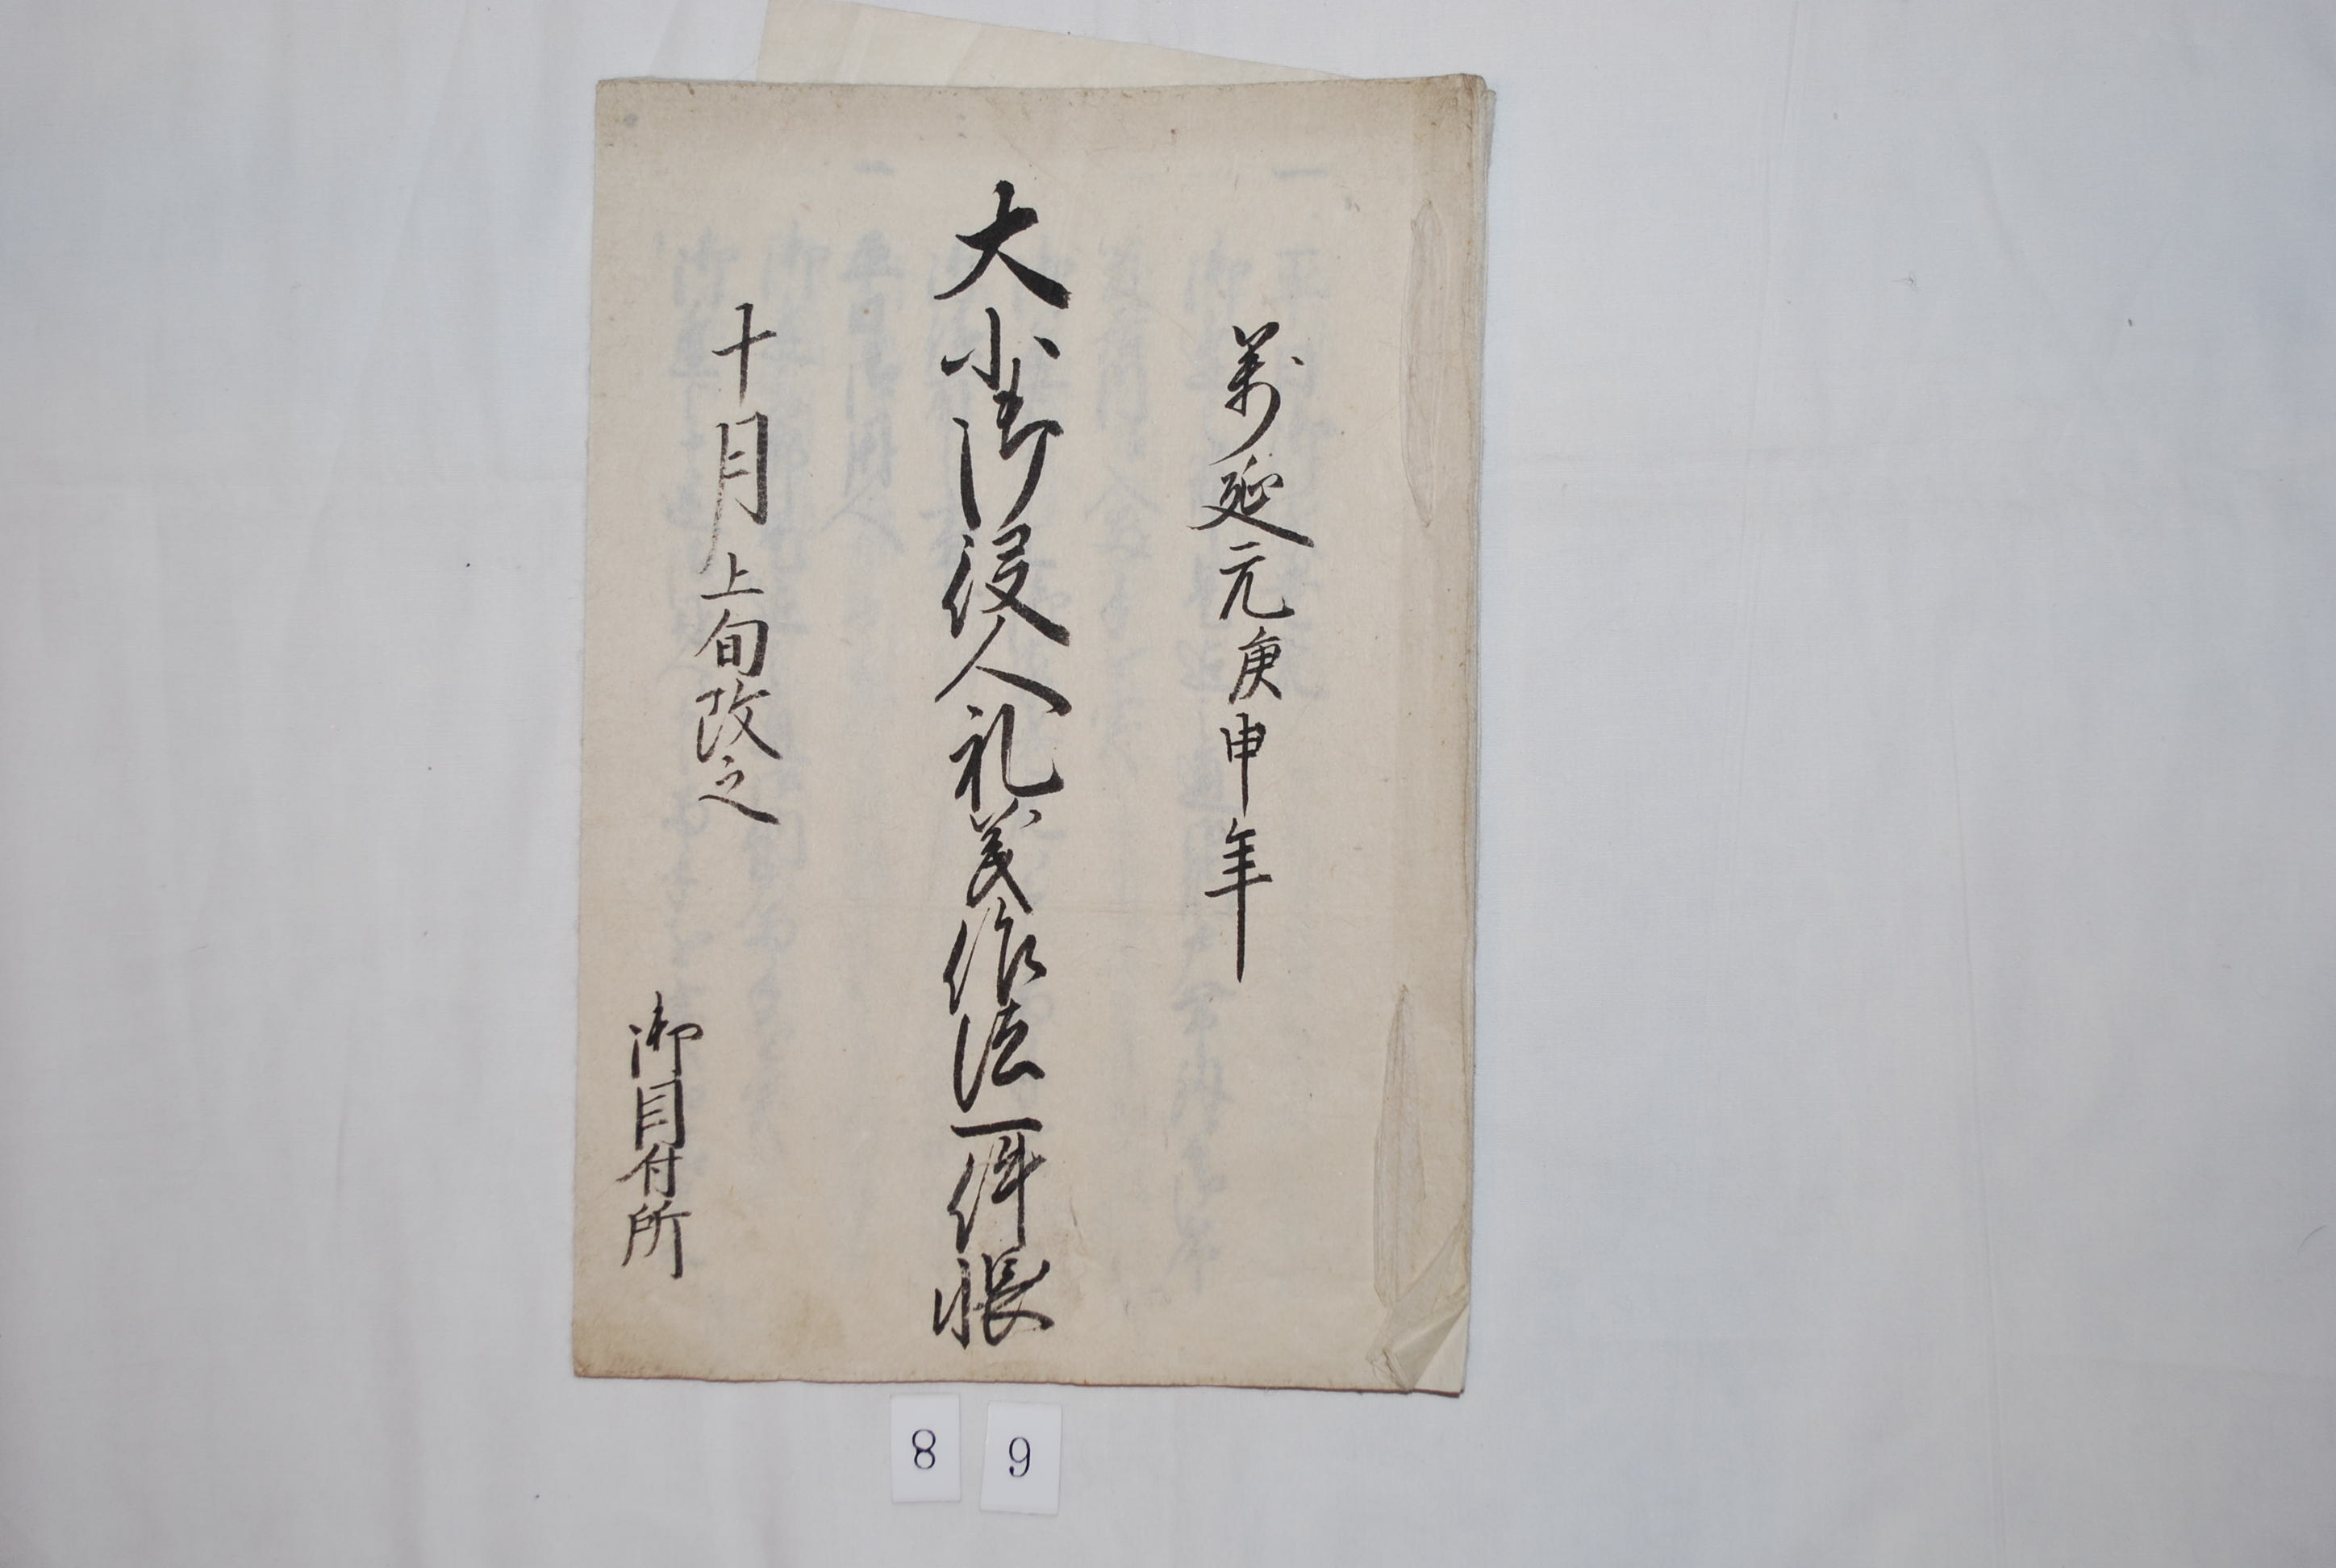 萬延元庚申年
大小御役人礼義作法一件帳
十月上旬改之
御目付所
8 9